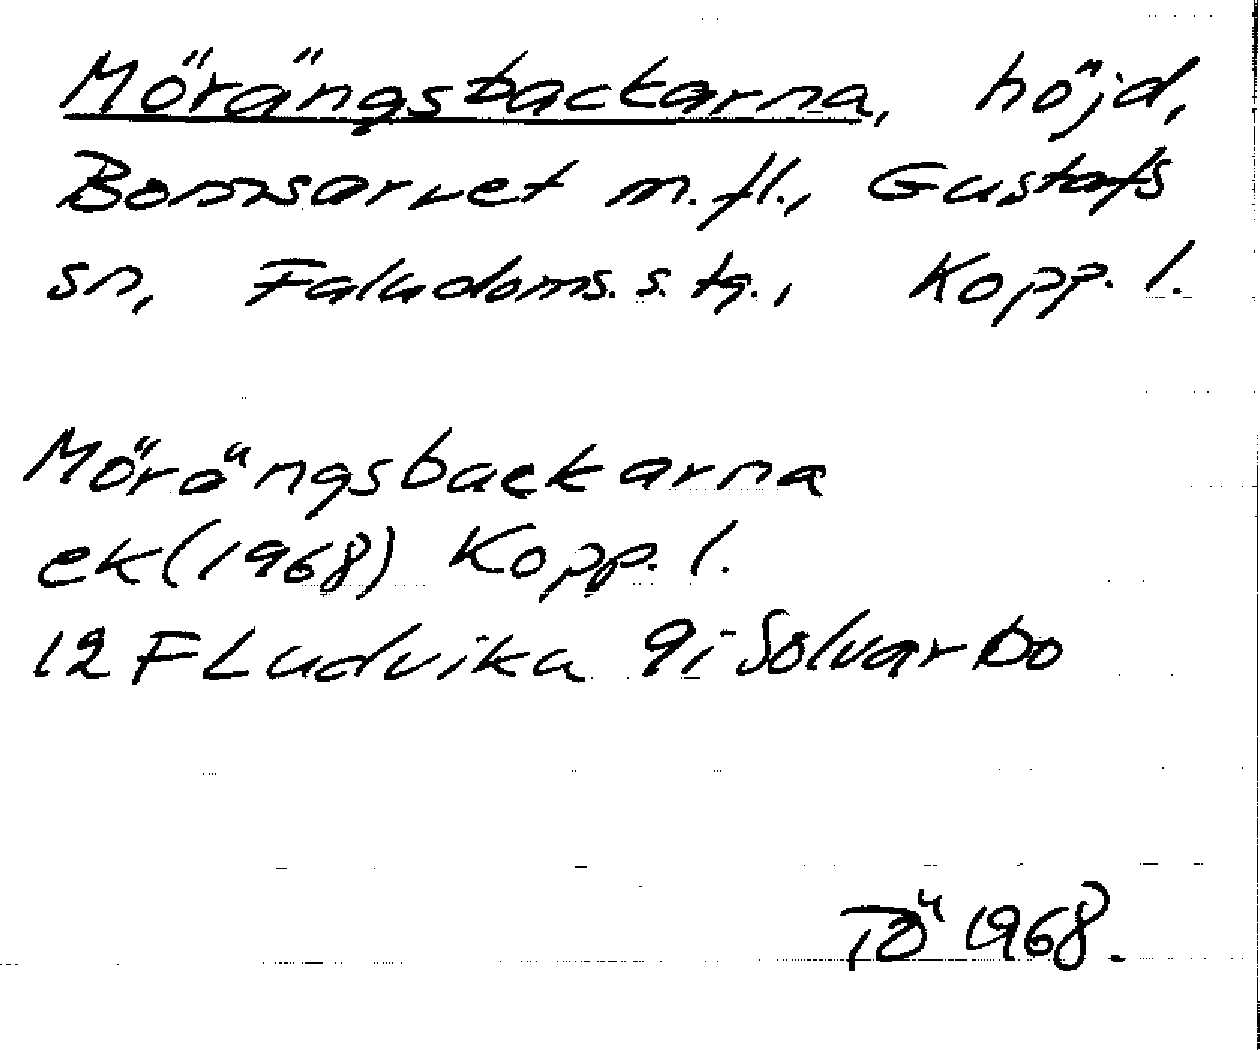 Mörängsbackarna, höjd,
Bommsarvet m.fl., Gustafs
sn, Faludoms. s. tg., Kopp. l.
Mörängsbackarna
ek (1968) Kopp. l.
12 F Ludvika 9i Solvarbo
TÖ 1968.